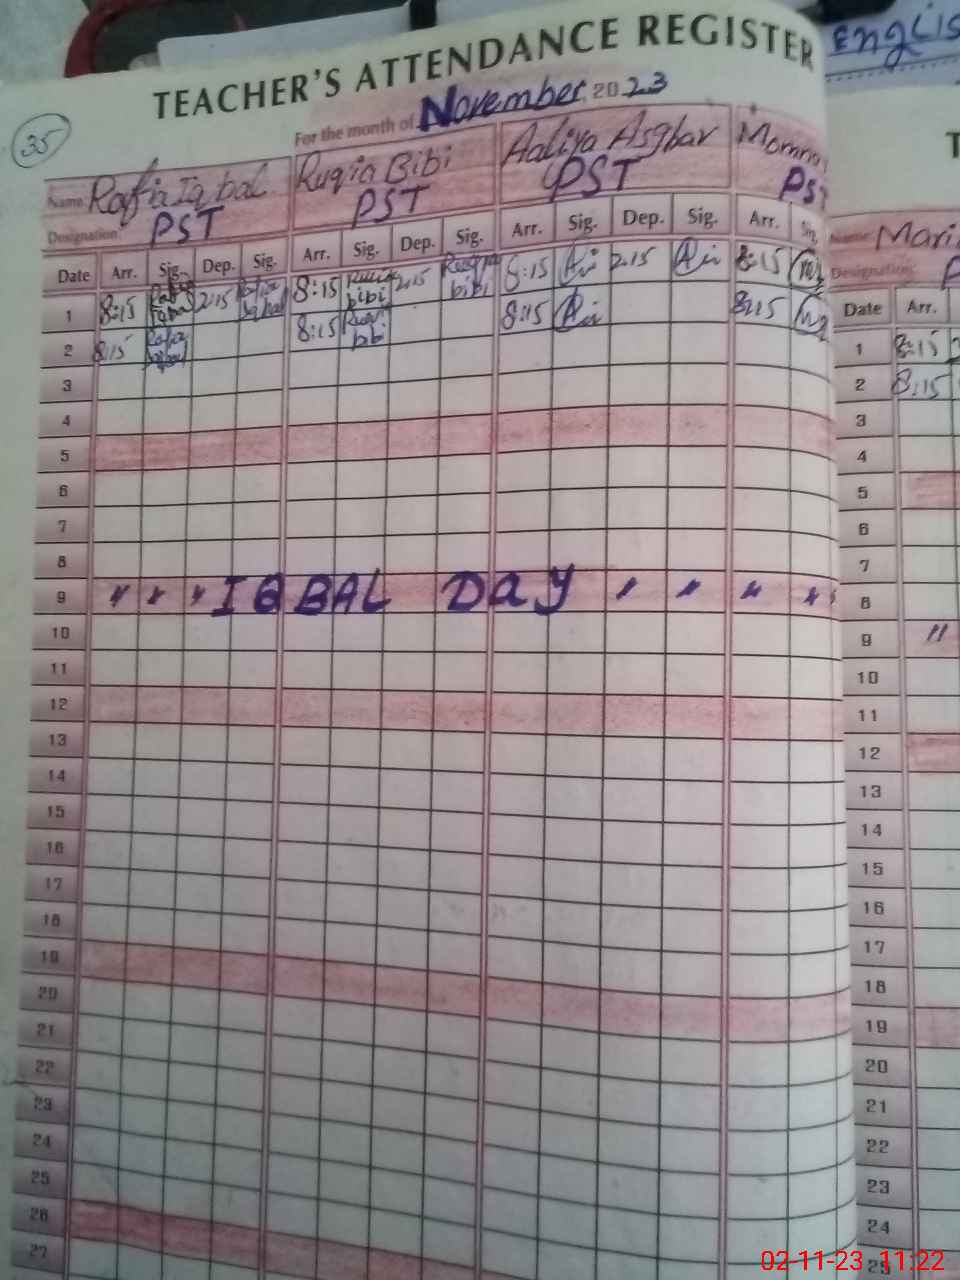 English
TEACHER'S ATTENDANCE REGISTER
35
For the month of November 2023
Name Rafia Iqbal Ruqia Bibi Aaliya Asghar
Designation: PST PST PST PST
Date Arr. Sig. Dep. Sig. Arr. Sig. Dep. Sig. Arr. Sig. Dep. Sig. Arr. Sig.
1 8:15 Rafia Iqbal 2:15 Rafia Iqbal 8:15 Ruqia bibi 2:15 Ruqia bibi 8:15 2:15 8:15
2 8:15 Rafia Iqbal 8:15 Ruqia bibi 8:15 8:15
3
4
5
6
7
8
9 " " " IQBAL DAY " " " "
10
11
12
13
14
15
16
17
18
19
20
21
22
23
24
25
26
27
T
Name:
Designation:
Date Arr.
1 8:15
2 8:15
3
4
5
6
7
8
9 "
10
11
12
13
14
15
16
17
18
19
20
21
22
23
24
25
02-11-23 11:22